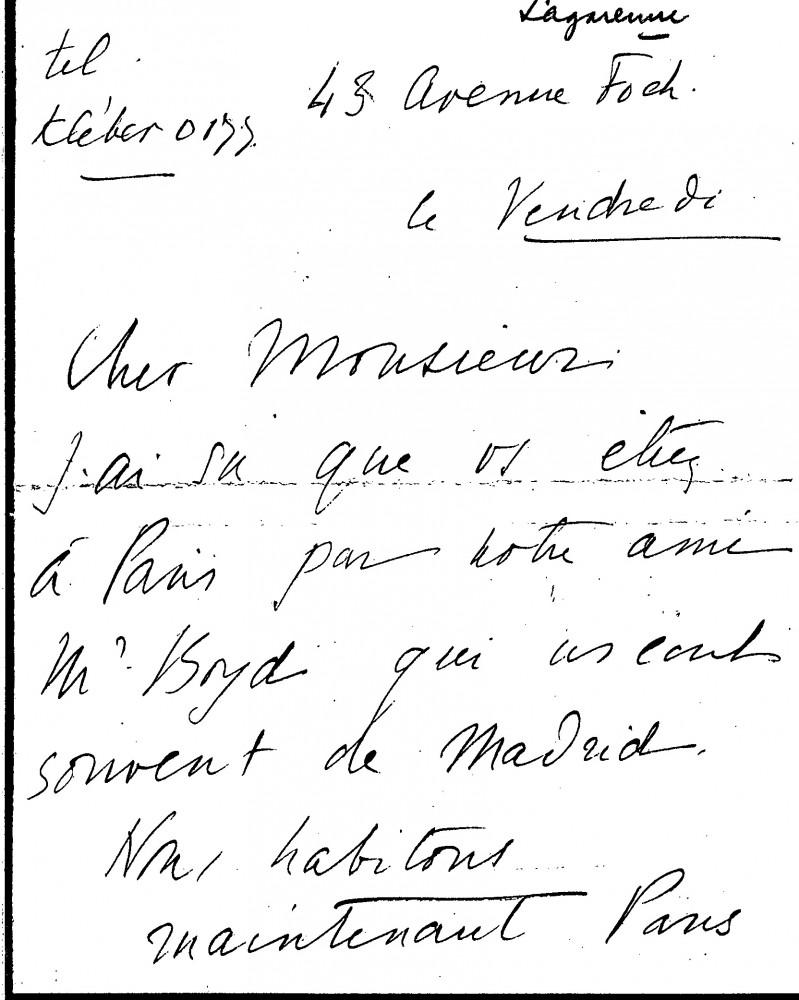 Lagarenne
tel
43 Avenue Foch.
Kléber 0199
le Vendredi
Cher Monsieur
J'ai su que vs étiez
à Paris par notre ami
Mr Boyd qui ns écrit
souvent de Madrid.
Nous habitons
maintenant Paris